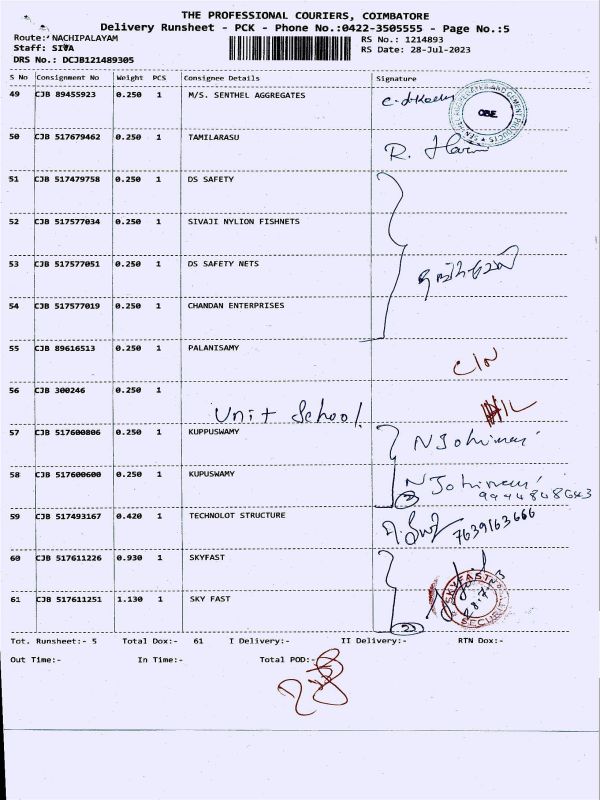 THE PROFESSIONAL COURIERS, COIMBATORE
Delivery Runsheet - PCK - Phone No.:0422-3505555 - Page No.:5
Route: NACHIPALAYAM
RS No.: 1214893
Staff: SIVA
RS Date: 28-Jul-2023
DRS No.: DCJB121489305
S No Consignment No Weight PCS Consignee Details Signature
49 CJB 89455923 0.250 1 M/S. SENTHEL AGGREGATES
50 CJB 517679462 0.250 1 TAMILARASU
51 CJB 517479758 0.250 1 DS SAFETY
52 CJB 517577034 0.250 1 SIVAJI NYLION FISHNETS
53 CJB 517577051 0.250 1 DS SAFETY NETS
54 CJB 517577019 0.250 1 CHANDAN ENTERPRISES
55 CJB 89616513 0.250 1 PALANISAMY C/N
56 CJB 300246 0.250 1
Unit School.
57 CJB 517600806 0.250 1 KUPPUSWAMY
58 CJB 517600600 0.250 1 KUPUSWAMY
2
59 CJB 517493167 0.420 1 TECHNOLOT STRUCTURE
7639163666
60 CJB 517611226 0.930 1 SKYFAST
61 CJB 517611251 1.130 1 SKY FAST SKYFAST SECURITY
2
Tot. Runsheet:- 5 Total Dox:- 61 I Delivery:- II Delivery:- RTN Dox:-
Out Time:- In Time:- Total POD:-